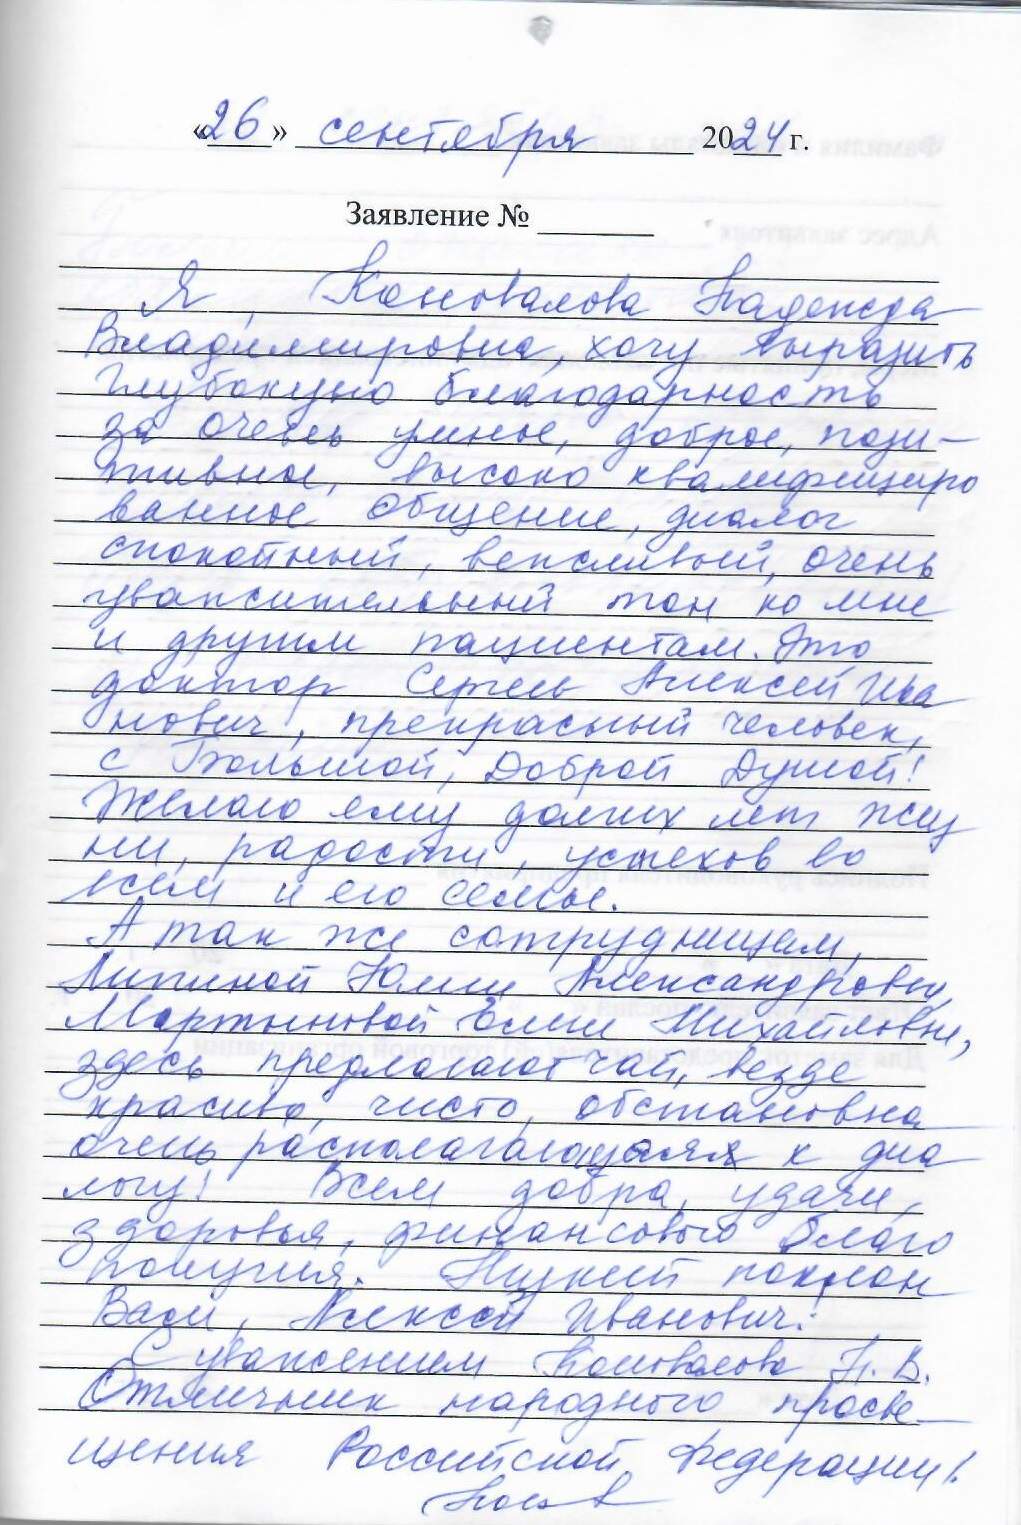 «26» сентября 2024 г.
Заявление № ______
Я, Коновалова Надежда
Владимировна, хочу выразить
глубокую благодарность
за очень умное, доброе, пози-
тивное, высоко квалифициро
ванное общение, диалог
спокойный, вежливый, очень
уважительный тон ко мне
и другим пациентам. Это
доктор Алексей Ива
нович, прекрасный человек,
с Большой, Доброй Душой!
Желаю ему долгих лет жиз
ни, радости, успехов во
всем и его семье.
А так же сотрудницам,
Юлии Александровне,
Мартыновой Юлии Михайловне,
здесь предлагают чай, везде
красиво, чисто, обстановка
очень располагающаяся к диа
логу! Всем добра, удачи,
здоровья, финансового благо
получия. Низкий поклон
Вам, Алексей Иванович!
С уважением Коновалова Н. В.
Отличник народного просве-
щения Российской Федерации!